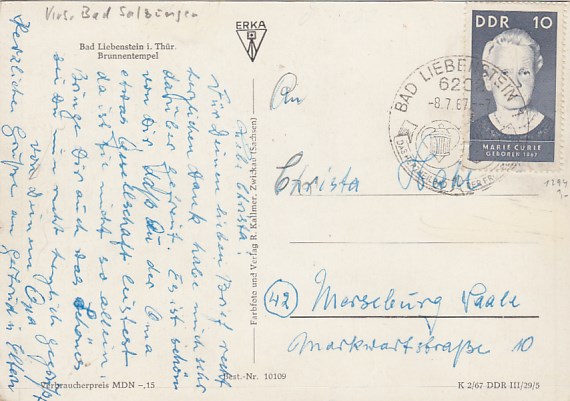 Kers. Bad Salzungen
Bad Liebenstein i. Thür.
Brunnentempel
ERKA
DDR 10
MARIE CURIE
GEBOREN 1867
BAD LIEBENSTEIN
620
-8.7.67-7
Liebe Christa!
Für Deinen lieben Brief recht
herzlichen Dank habe mich sehr
darüber gefreut. Es ist schön
von Dir, daß Du der Oma
etwas Gesellschaft leistest
da ist sie nicht so allein.
Bringe Dir auch was Schönes
mit
sei Du nun recht herzlich gegrüßt
von Deinem Opa
Herzliche Grüße an Gertrud u. Eltern
Farbfoto und Verlag R. Kallmer, Zwickau (Sachsen)
An
Christa
(42) Merseburg Saale
Markwartstraße 10
1294
Verbraucherpreis MDN -,15
Best.-Nr. 10109
K 2/67 DDR III/29/5